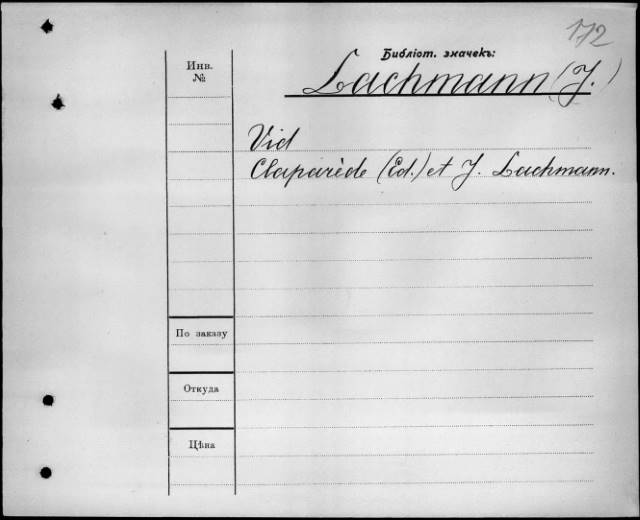 172
Библіот. значекъ:
Lachmann (J.)
Инв.
№
Vid
Claparède (Ed.) et J. Lachmann.
По заказу
Откуда
Цѣна